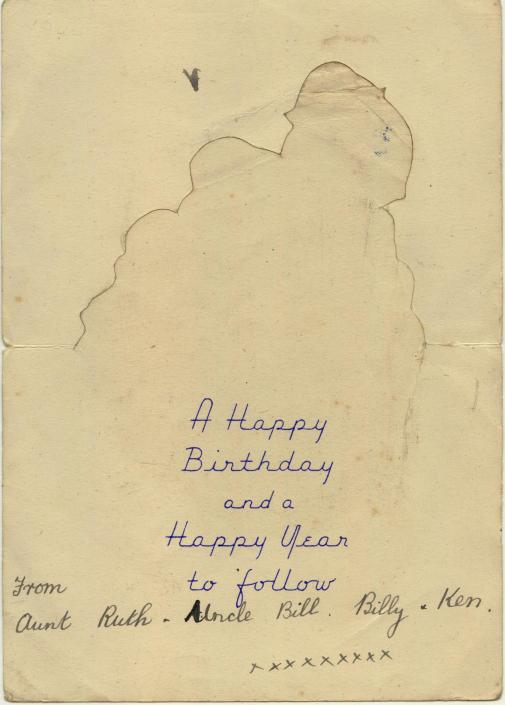 A Happy
Birthday
and a
Happy Year
to follow
From
Aunt Ruth - Uncle Bill. Billy. Ken.
xxxxxxxxx